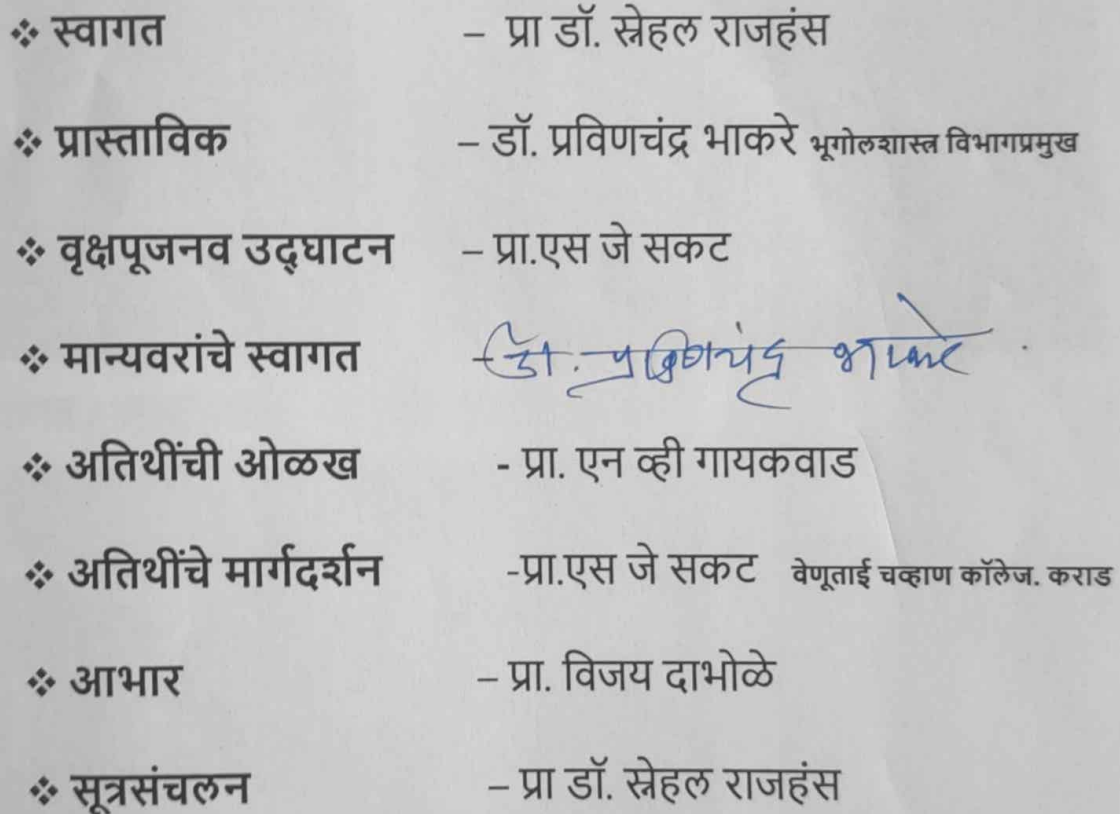 ❖ स्वागत – प्रा डॉ. स्नेहल राजहंस
❖ प्रास्ताविक – डॉ. प्रविणचंद्र भाकरे भूगोलशास्त्र विभागप्रमुख
❖ वृक्षपूजनव उद्घाटन – प्रा.एस जे सकट
❖ मान्यवरांचे स्वागत - डॉ. प्रविणचंद्र भाकरे
❖ अतिथींची ओळख - प्रा. एन व्ही गायकवाड
❖ अतिथींचे मार्गदर्शन -प्रा.एस जे सकट वेणूताई चव्हाण कॉलेज. कराड
❖ आभार – प्रा. विजय दाभोळे
❖ सूत्रसंचलन – प्रा डॉ. स्नेहल राजहंस